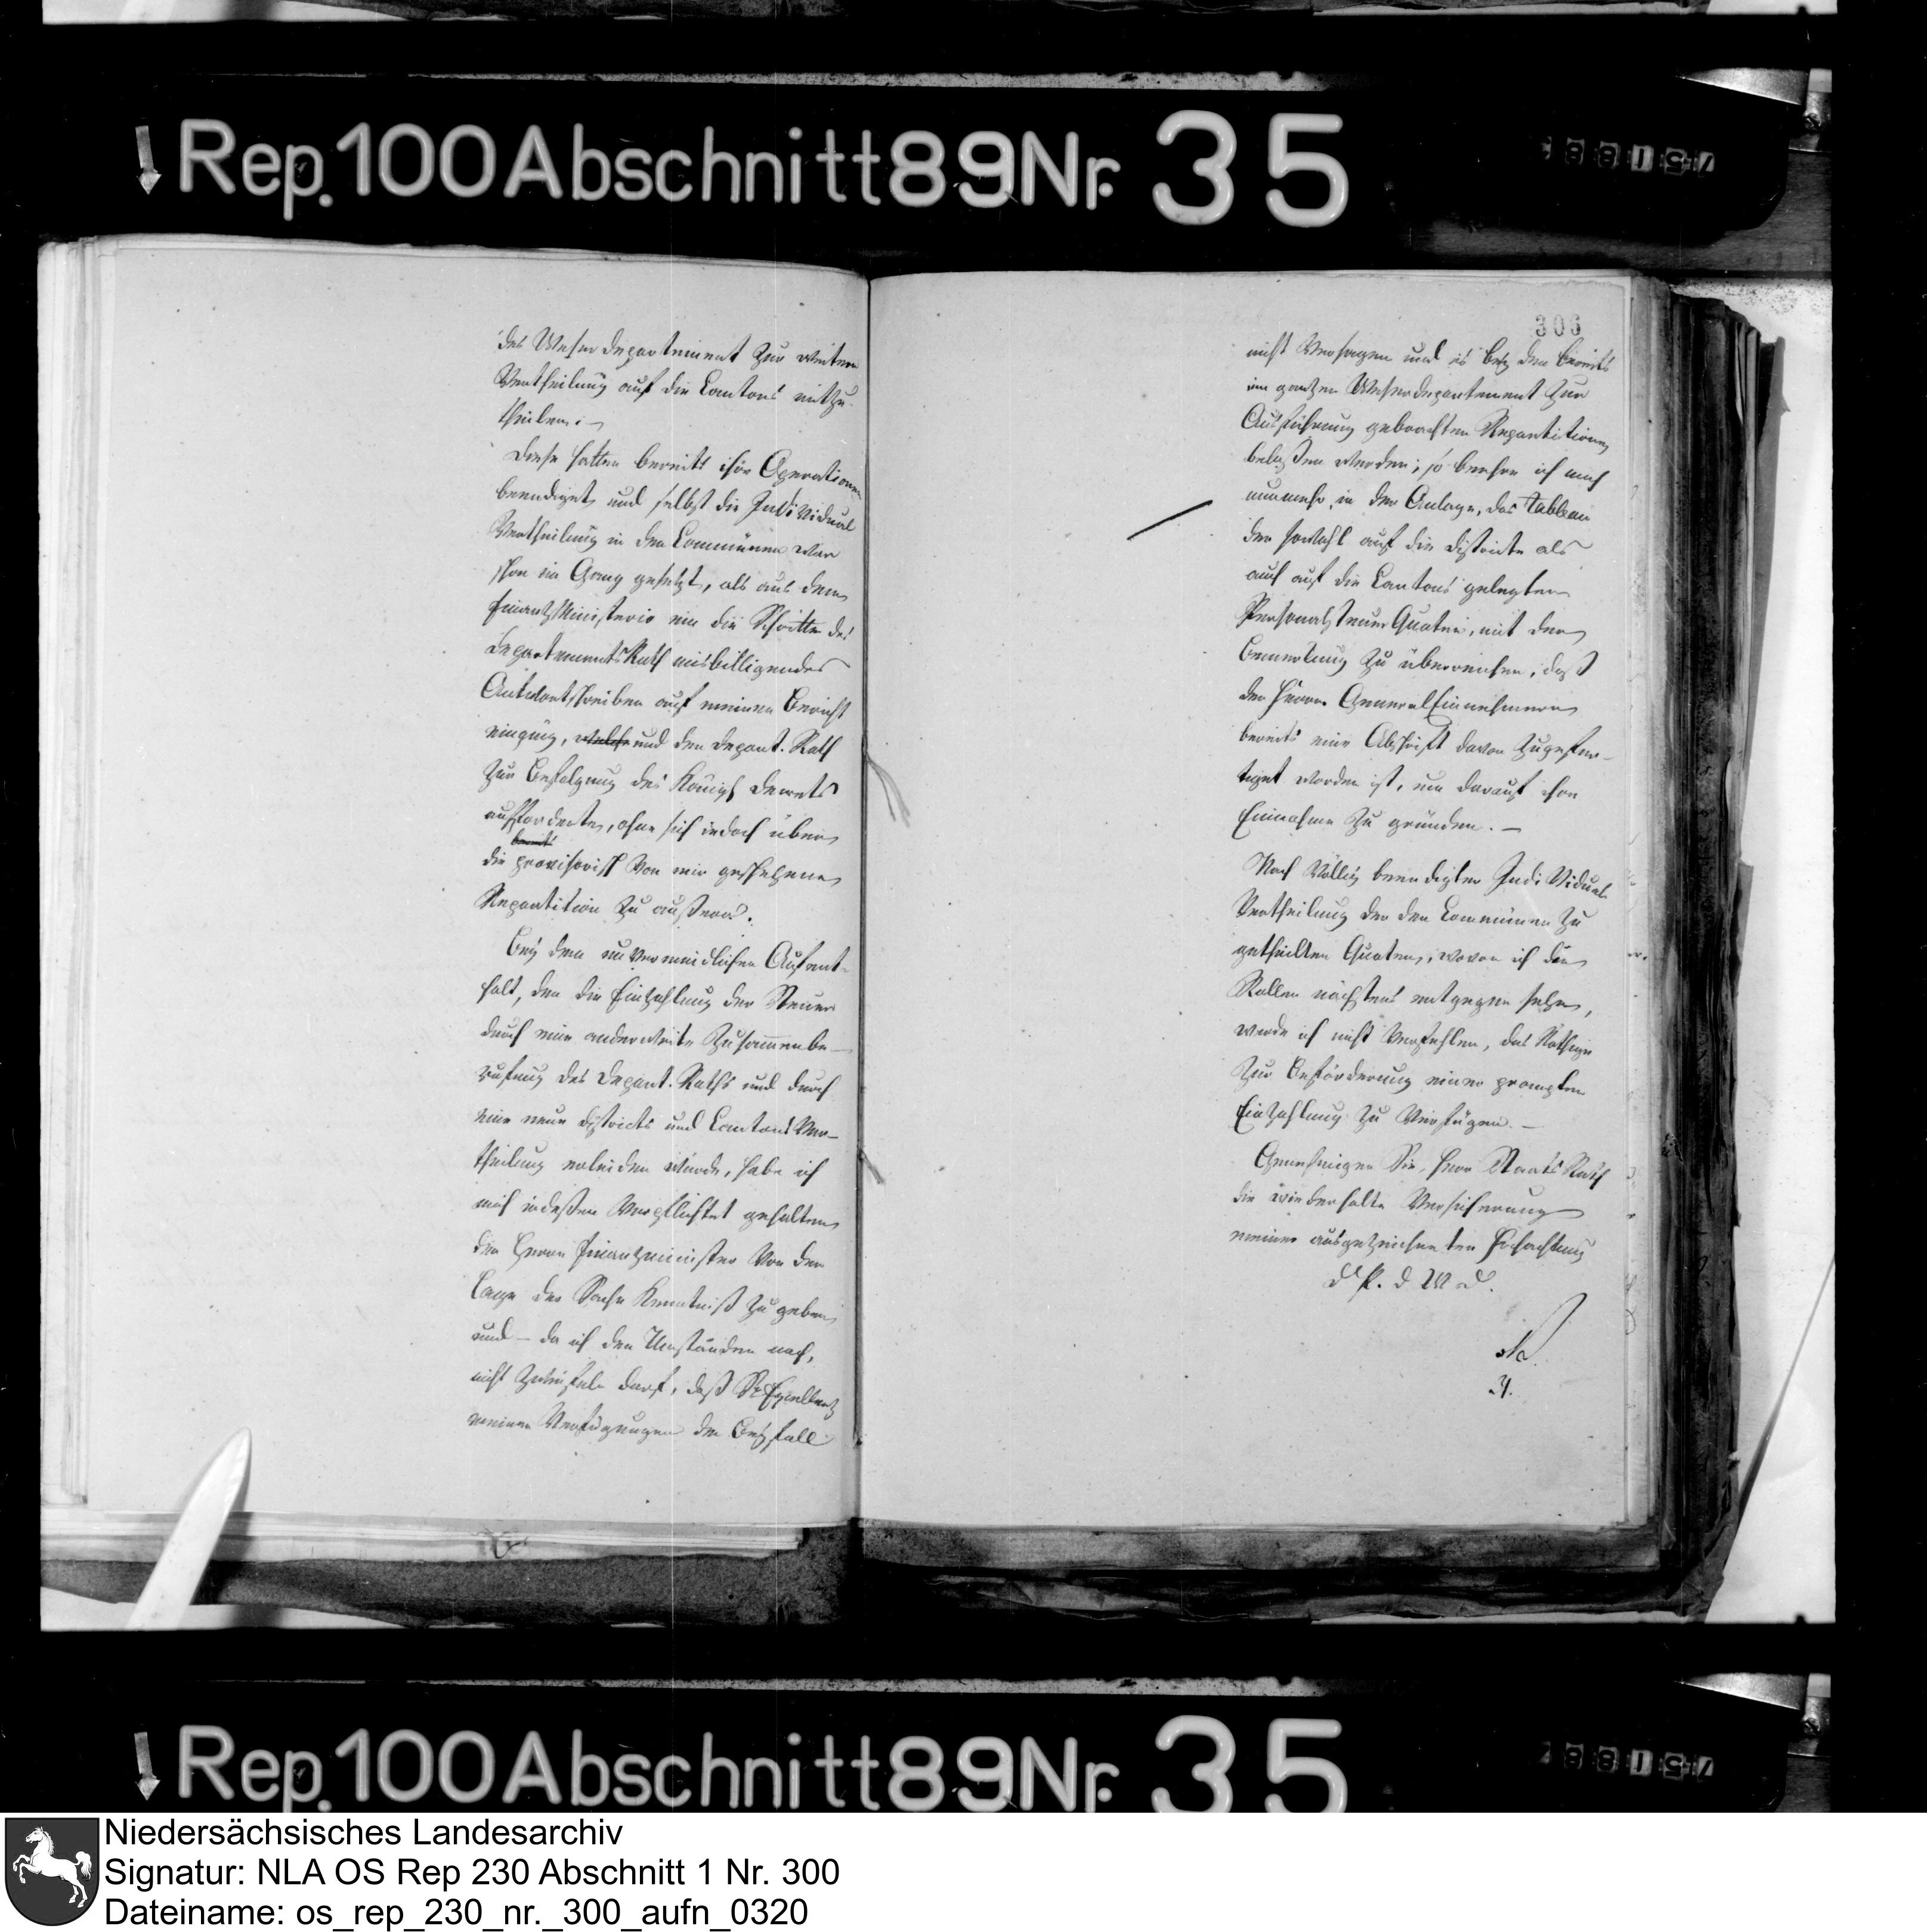 Rep. 100 Abschnitt 89 Nr. 35
des Weser Departement zur weitern
Vertheilung auf die Cantons mitzu-
theilen. –
Diese hatten bereits ihre Operationen
beendiget und selbst die Individual
Vertheilung in den Communen war
schon im Gang gesetzt, als aus dem
Finantz Ministerio ein die Schritte des
Departements Rath misbilligendes
Antwortschreiben auf meinen Bericht
einging, welches und den Depart. Rath
zur Befolgung des Königl Decrets
aufforderte, ohne sich jedoch über
bereits
die provisorisch von mir geschehene
Repartition zu äußern.
Bey dem unvermeidlichen Aufent-
halt, den die Einzahlung der Steuer
durch eine anderweite Zusammenbe-
rufung des Depart. Raths und durch
eine neue Districts und Cantons Ver-
theilung erleiden würde, habe ich
mich indeßen verpflichtet gehalten
den Herrn Finantzminister von der
Lage der Sache Kenntniß zu geben
und – da ich den Umständen nach,
nicht zweifeln darf, daß Sr Excellentz
meinen Verfügungen den Beyfall
306
nicht versagen und es bey den bereits
im gantzen Weserdepartement zur
Ausführung gebrachten Repartitionen
belaßen werden; so beehre ich mich
nunmehr, in der Anlage, das Tableau
der sowohl auf die Districte als
auch auf die Cantons gelegten
Personalsteuer Quoten, mit der
Bemerkung zu überreichen, daß
den Herrn General Einnehmern
bereits eine Abschrift davon zugefer-
tiget worden ist, um darauf ihre
Einnahme zu gründen. –
Nach völlig beendigter Individual
Vertheilung der den Communen zu
getheilten Quoten, wovon ich die
Rollen nächstens entgegen sehe,
werde ich nicht verfehlen, das Nöthige
zur Beförderung einer prompten
Einzahlung zu verfügen. –
Genehmigen Sie, Herr Staats Rath
die wiederholte Versicherung
meiner ausgezeichneten Hochachtung
d P. d W D.
Rep. 100 Abschnitt 89 Nr. 35
Niedersächsisches Landesarchiv
Signatur: NLA OS Rep 230 Abschnitt 1 Nr. 300
Dateiname: os_rep_230_nr._300_aufn_0320